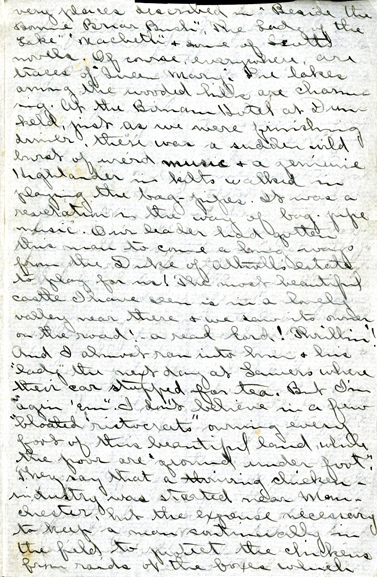 very places described in "Beside the
Bonnie Briar Bush", "The Lady of the
Lake" "Macbeth" & some of Scott's
novels. Of course, everywhere, are
traces of "Queen Mary". The lakes
among the wooded hills are charm-
ing. At the Birnam Hotel at Dun-
keld, just as we were finishing
dinner, there was a sudden wild
burst of weird music & a genuine
Highlander in kilts walked in
playing the bag-pipes. It was a
revelation in the way of bag pipe
music. Our leader had gotten
this man to come a long ways
from the Duke of Atholl's estate
to play for us! The most beautiful
castle I have seen is in a lovely
valley near there & we saw its owner
on the road! a real lord! Thrillin'!
And I almost ran into him & his
"lady" the next day at Lawers where
their car stopped for tea. But I'm
"agin 'em". I don't believe in a few
"bloated 'ristocrats" owning every
foot of this beautiful land, while
the poor are "ground under foot".
They say that a thriving chicken-
industry was started near Man-
chester, but the expense necessary
to keep a man continually in
the field, to protect the chickens
from raids of the foxes which